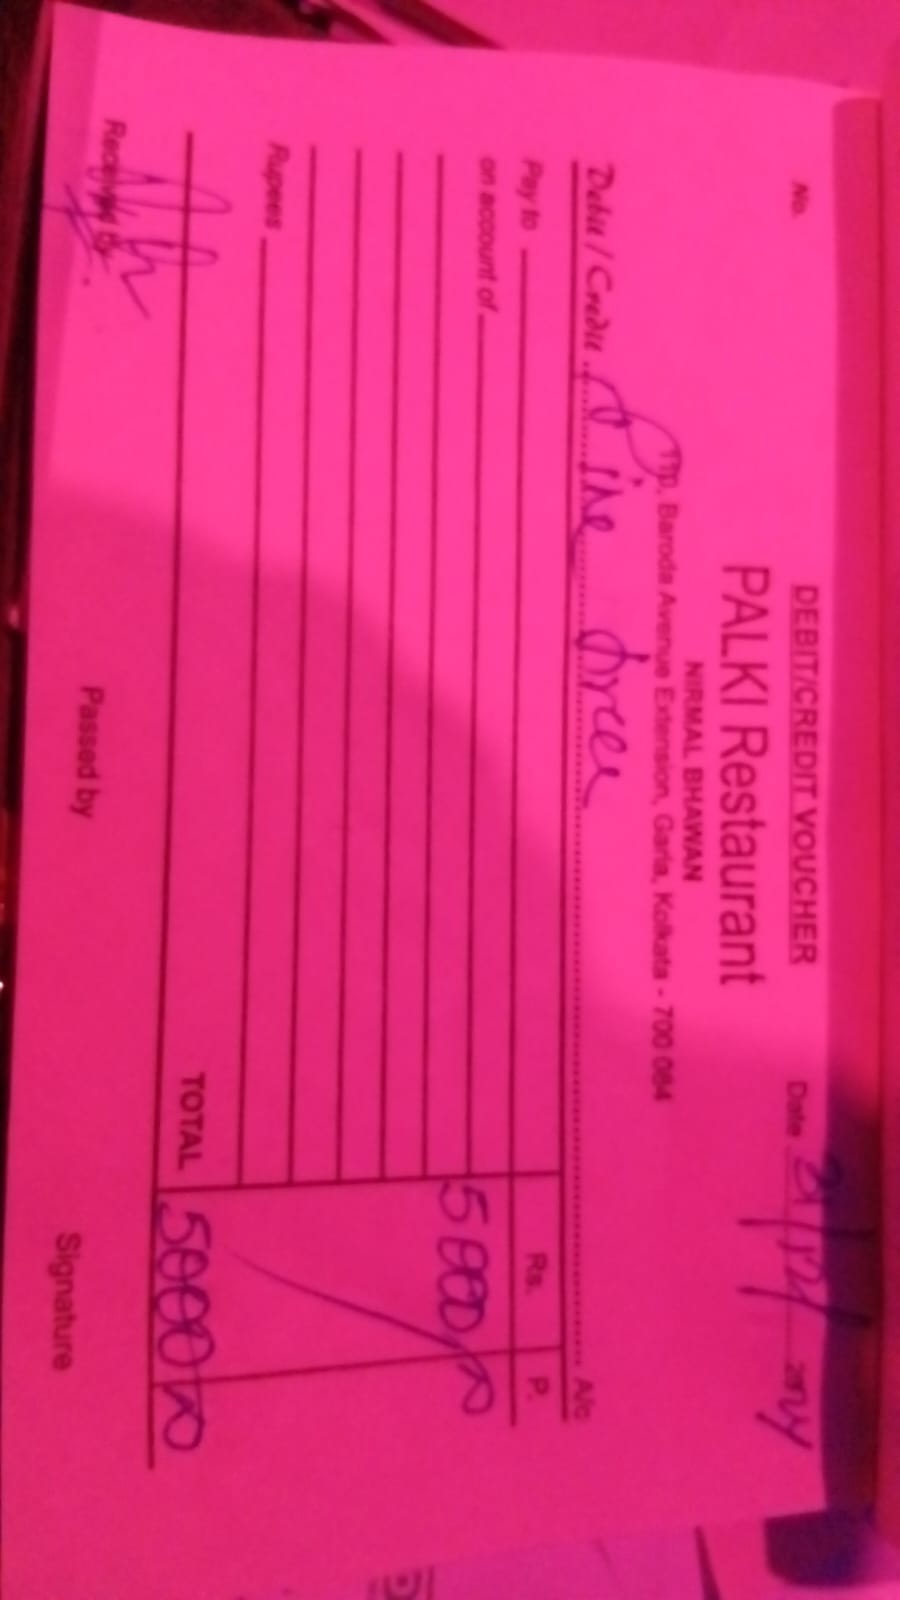 DEBIT/CREDIT VOUCHER
No.
Date 21/12/ 2024
PALKI Restaurant
NIRMAL BHAWAN
Baroda Avenue Extension, Garia, Kolkata - 700 084
Debit / Credit Fire A/c
Pay to Rs. P.
on account of
5000
Rupees
TOTAL 5000
Received by Passed by Signature